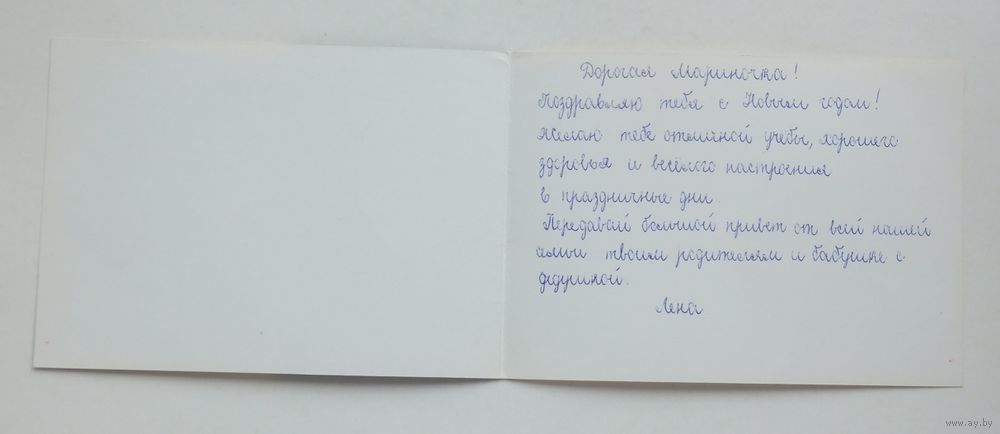 Дорогая Мариночка!
Поздравляю тебя с Новым годом!
Желаю тебе отличной учебы, хорошего
здоровья и весёлого настроения
в праздничные дни.
Передавай большой привет от всей нашей
семьи твоим родителям и бабушке с
дедушкой.
Лена
www.ay.by